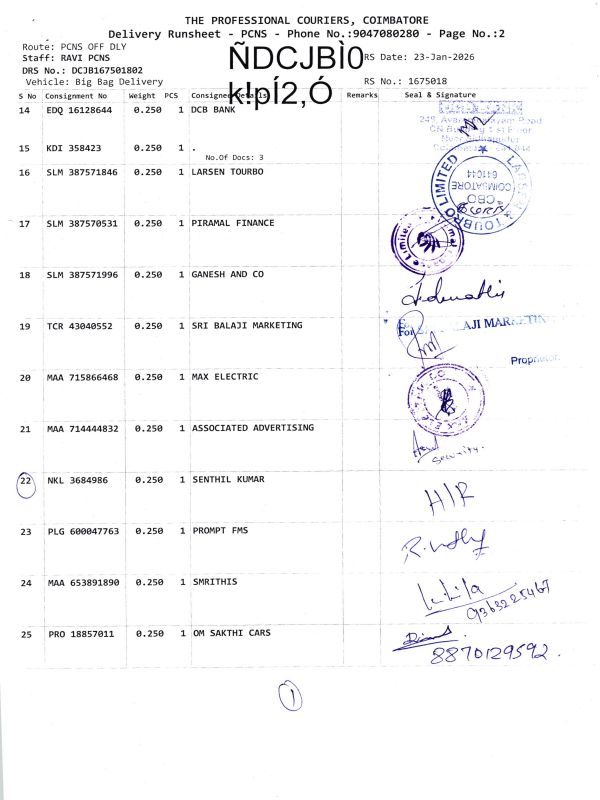 THE PROFESSIONAL COURIERS, COIMBATORE
Delivery Runsheet - PCNS - Phone No.:9047080280 - Page No.:2
Route: PCNS OFF DLY
Staff: RAVI PCNS
ÑDCJBÌ0
RS Date: 23-Jan-2026
DRS No.: DCJB167501802
Vehicle: Big Bag Delivery
k!pÍ2,Ó
RS No.: 1675018
S No Consignment No Weight PCS Consignee Details Remarks Seal & Signature
14 EDQ 16128644 0.250 1 DCB BANK
15 KDI 358423 0.250 1 .
No.Of Docs: 3
16 SLM 387571846 0.250 1 LARSEN TOURBO
TOUBRO LIMITED
COIMBATORE
641044
CBO
17 SLM 387570531 0.250 1 PIRAMAL FINANCE
Limited
18 SLM 387571996 0.250 1 GANESH AND CO
19 TCR 43040552 0.250 1 SRI BALAJI MARKETING
For AJI MARKETIN
Proprietor
20 MAA 715866468 0.250 1 MAX ELECTRIC
21 MAA 714444832 0.250 1 ASSOCIATED ADVERTISING
Security.
22 NKL 3684986 0.250 1 SENTHIL KUMAR
H/R
23 PLG 600047763 0.250 1 PROMPT FMS
24 MAA 653891890 0.250 1 SMRITHIS
9363225467
25 PRO 18857011 0.250 1 OM SAKTHI CARS
8870129592.
1